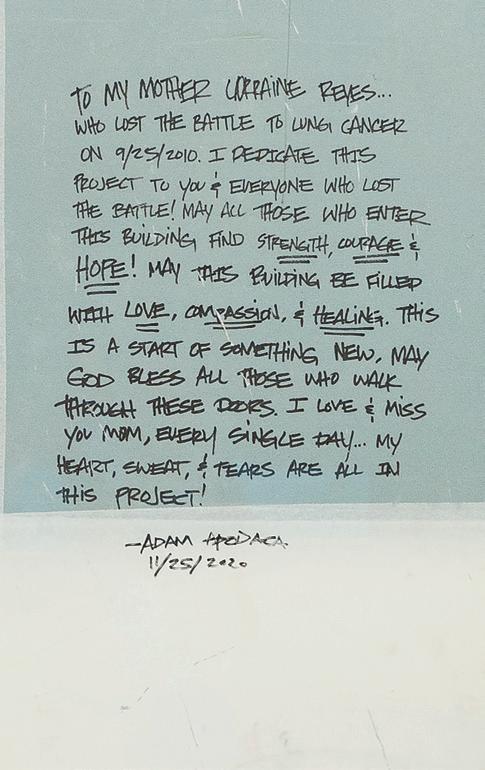 TO MY MOTHER LORRAINE REYES...
WHO LOST THE BATTLE TO LUNG CANCER
ON 9/25/2010. I DEDICATE THIS
PROJECT TO YOU & EVERYONE WHO LOST
THE BATTLE! MAY ALL THOSE WHO ENTER
THIS BUILDING FIND STRENGTH, COURAGE &
HOPE! MAY THIS BUILDING BE FILLED
WITH LOVE, COMPASSION, & HEALING. THIS
IS A START OF SOMETHING NEW, MAY
GOD BLESS ALL THOSE WHO WALK
THROUGH THESE DOORS. I LOVE & MISS
YOU MOM, EVERY SINGLE DAY... MY
HEART, SWEAT, & TEARS ARE ALL IN
THIS PROJECT!
-ADAM APODACA
11/25/2020